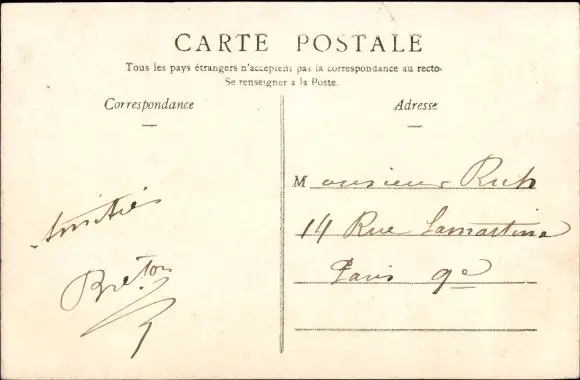 CARTE POSTALE
Tous les pays étrangers n'acceptent pas la correspondance au recto-
Se renseigner a la Poste.
Correspondance
Adresse
Amitiés
Breton
Monsieur Rich
14 Rue Lamartine
Paris 9e